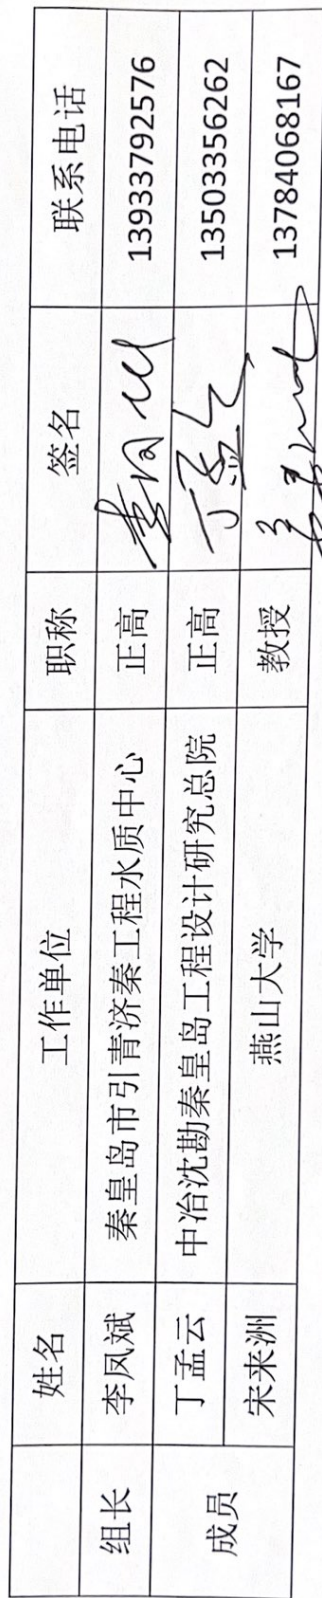 姓名 工作单位 职称 签名 联系电话
组长 李凤斌 秦皇岛市引青济秦工程水质中心 正高 13933792576
成员 丁孟云 中冶沈勘秦皇岛工程设计研究总院 正高 13503356262
宋来洲 燕山大学 教授 13784068167